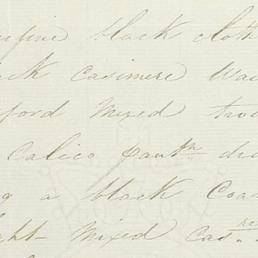 erfine black cloth
ck Casimere Wai
ford Mixed trou
Calico pantn dra
g a black Coa
ght Mixed Cas.re